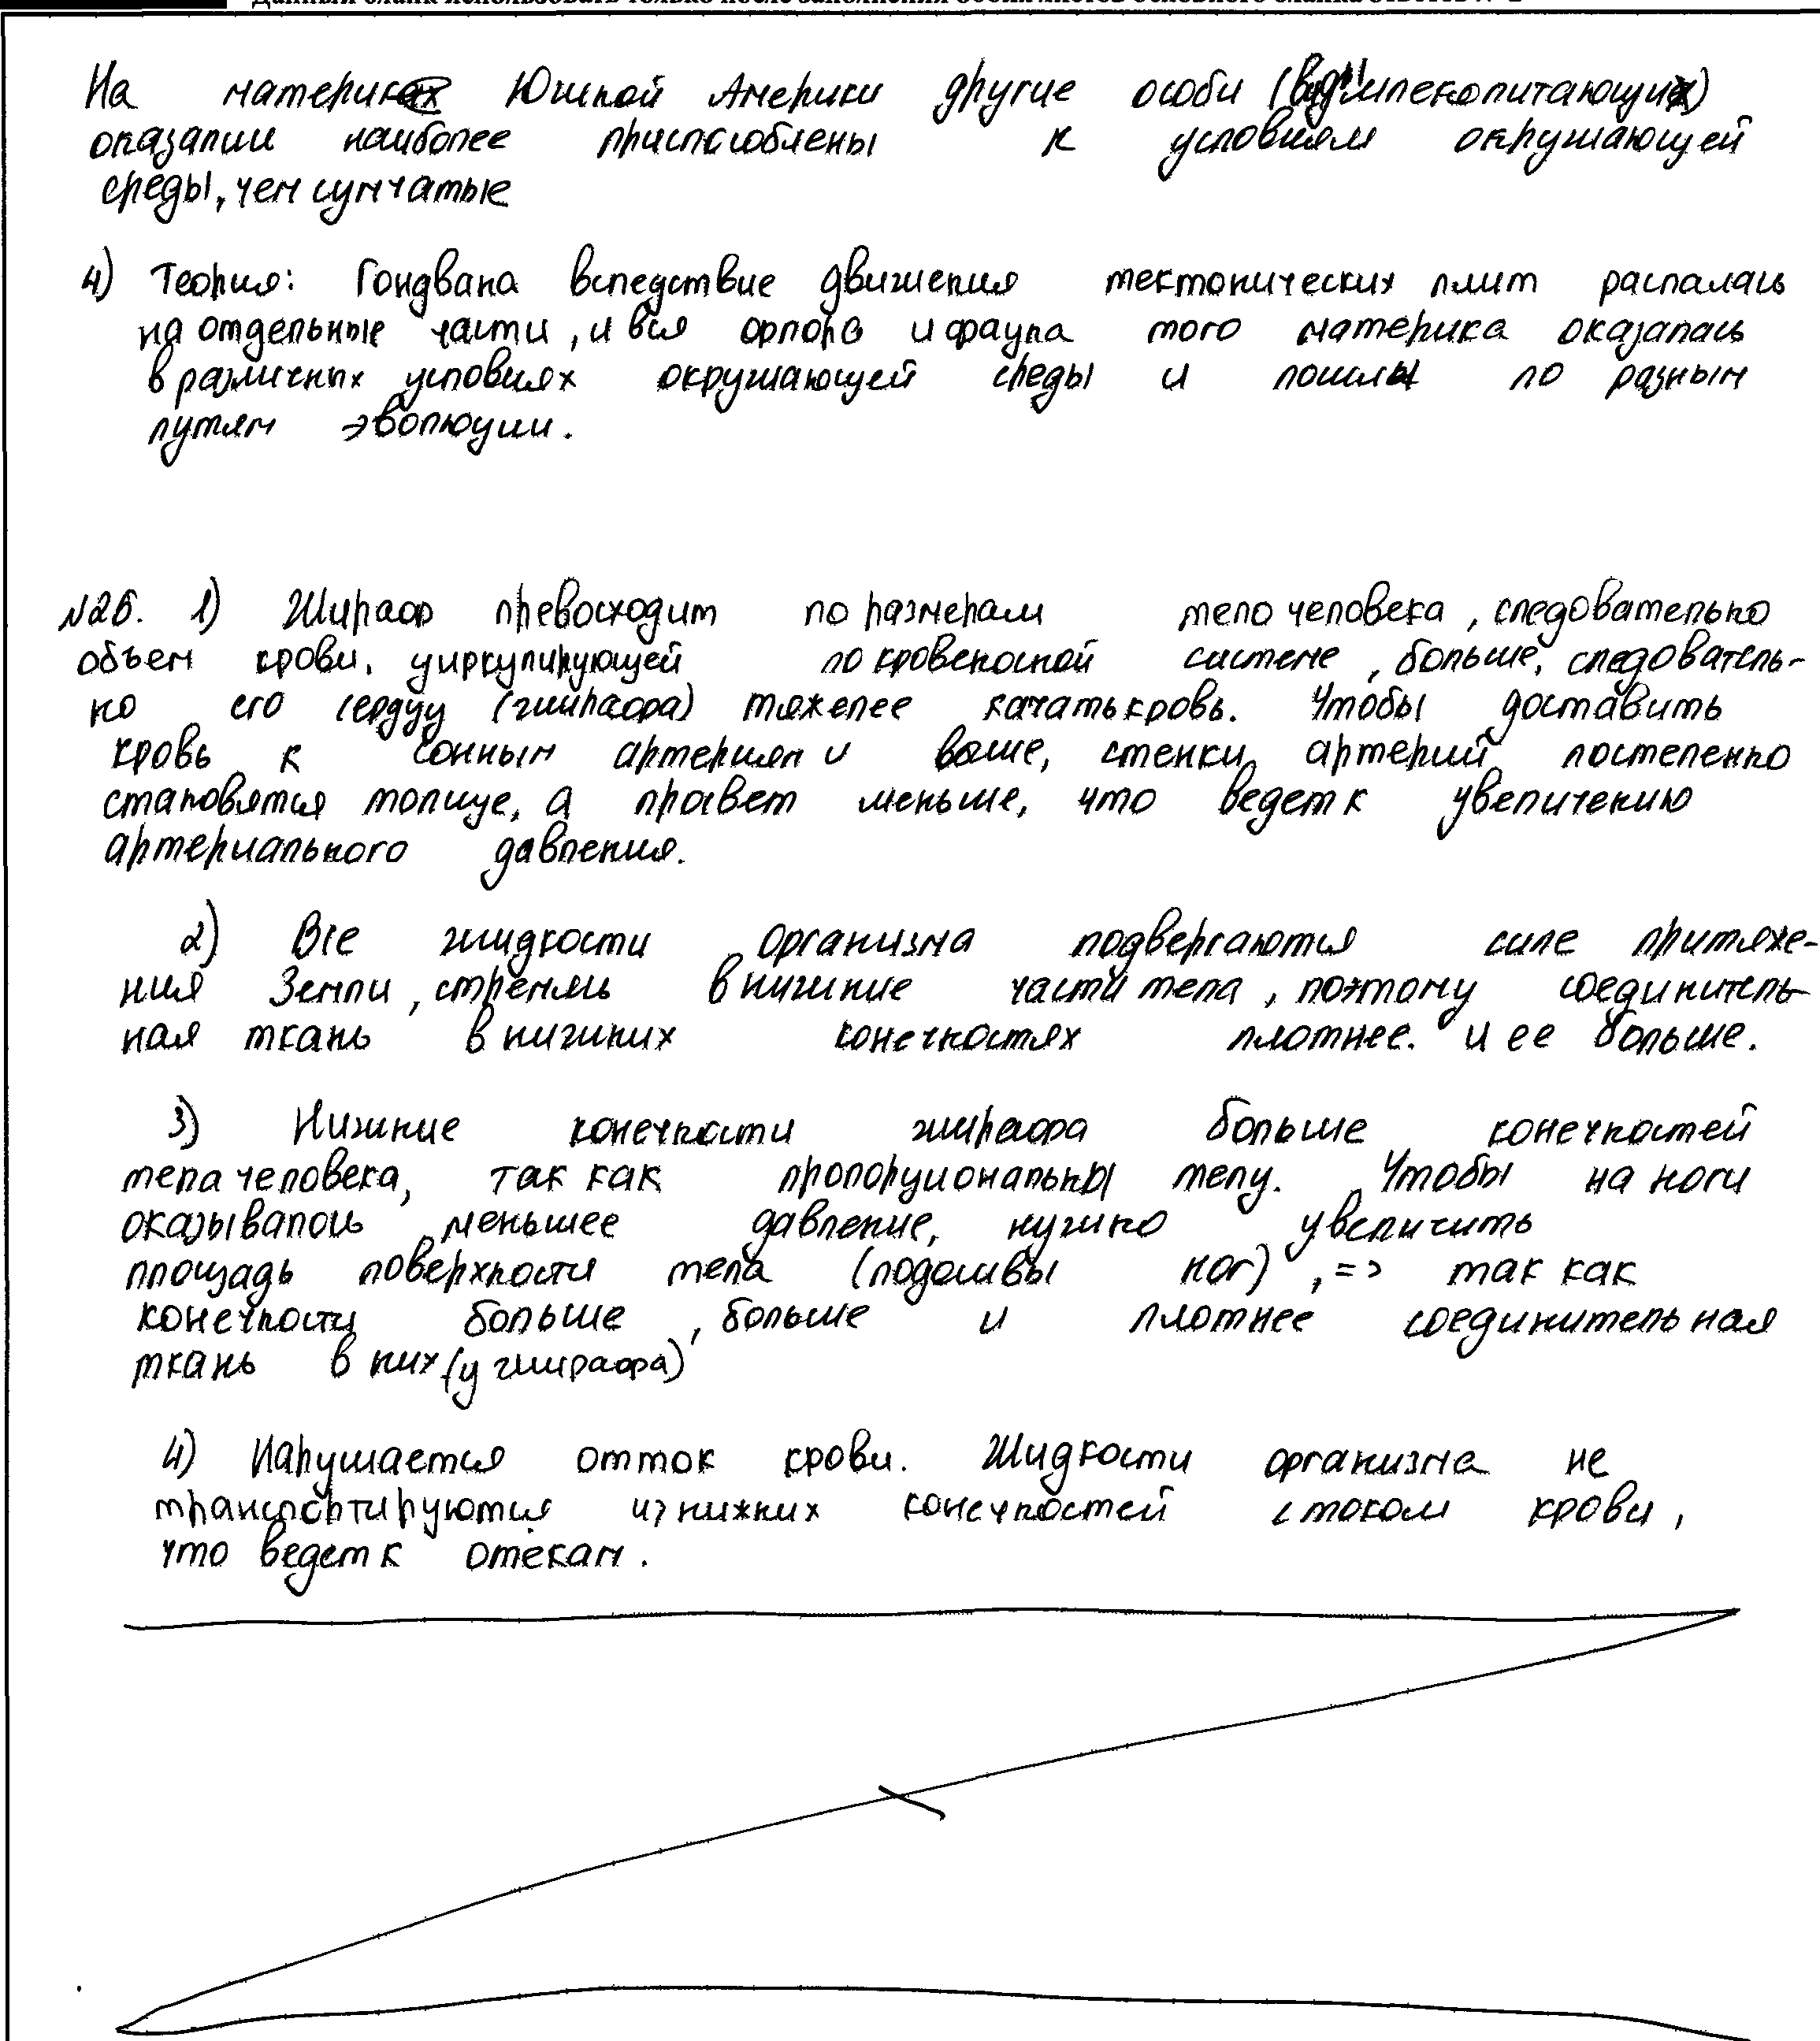 На материках Южной Америки другие особи (виды млекопитающих)
оказалии наиболее приспособлены к условиям окружающей
среды, чем сумчатые
4) Теория: Гондвана вследствие движения тектонических плит распалась
на отдельные части, и вся флора и фауна того материка оказалась
в различных условиях окружающей среды и пошла по разным
путям эволюции.
№26. 1) Жираф превосходит по размерам тело человека, следовательно
объем крови, циркулирующей по кровеносной системе, больше, следователь-
но его сердцу (жирафа) тяжелее качать кровь. Чтобы доставить
кровь к сонным артериям и выше, стенки артерий постепенно
становятся толще, а просвет меньше, что ведет к увеличению
артериального давления.
2) Все жидкости организма подвергаются силе притяже-
ния Земли, стремясь в нижние части тела, поэтому соединитель-
ная ткань в нижних конечностях плотнее. и ее больше.
3) Нижние конечности жирафа больше конечностей
тела человека, так как пропорциональны телу. Чтобы на ноги
оказывалось меньшее давление, нужно увеличить
площадь поверхности тела (подошвы ног), => так как
конечности больше, больше и плотнее соединительная
ткань в них (у жирафа)
4) Нарушается отток крови. Жидкости организма не
транспортируются из нижних конечностей с током крови,
что ведет к отекам.